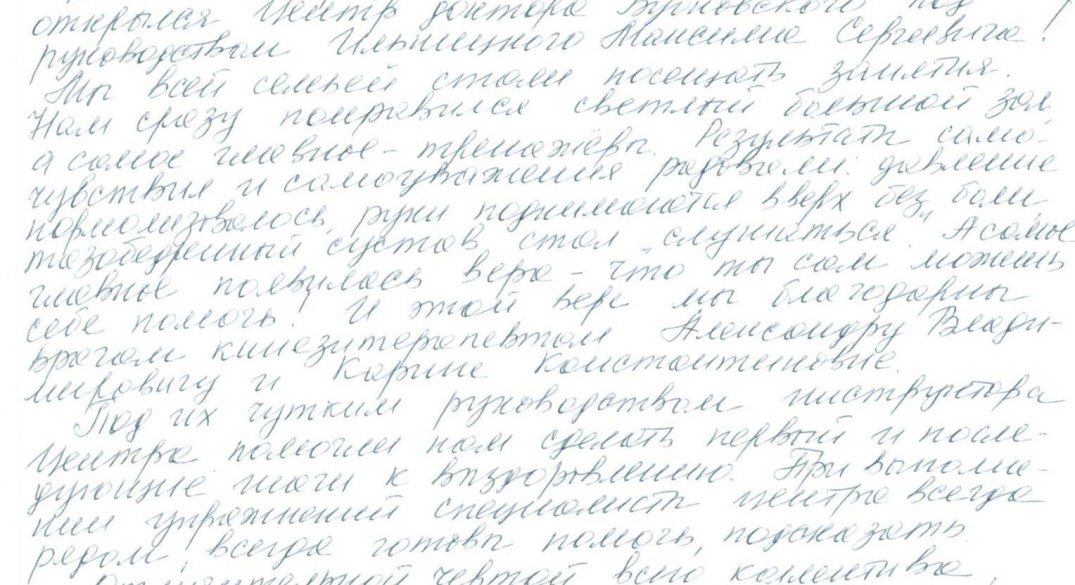 открылся Центр доктора Бубновского под
руководством Ильницкого Максима Сергеевича!
Мы всей семьей стали посещать занятия.
Нам сразу понравился светлый большой зал,
а самое главное - тренажёры. Результаты само-
чувствия и самоуважения радовали: давление
нормализовалось, руки поднимаются вверх без боли,
тазобедренный сустав стал "слушаться". А самое
главное появилась вера - что ты сам можешь
себе помочь! И этой вере мы благодарны
врачам кинезитерапевтам Александру Влади-
мировичу и Карине Константиновне.
Под их чутким руководством инструктора
Центра помогли нам сделать первый и после-
дующие шаги к выздоровлению. При выполне-
нии упражнений специалисты центра всегда
рядом, всегда готовы помочь, подсказать.
Отличительной чертой всего коллектива